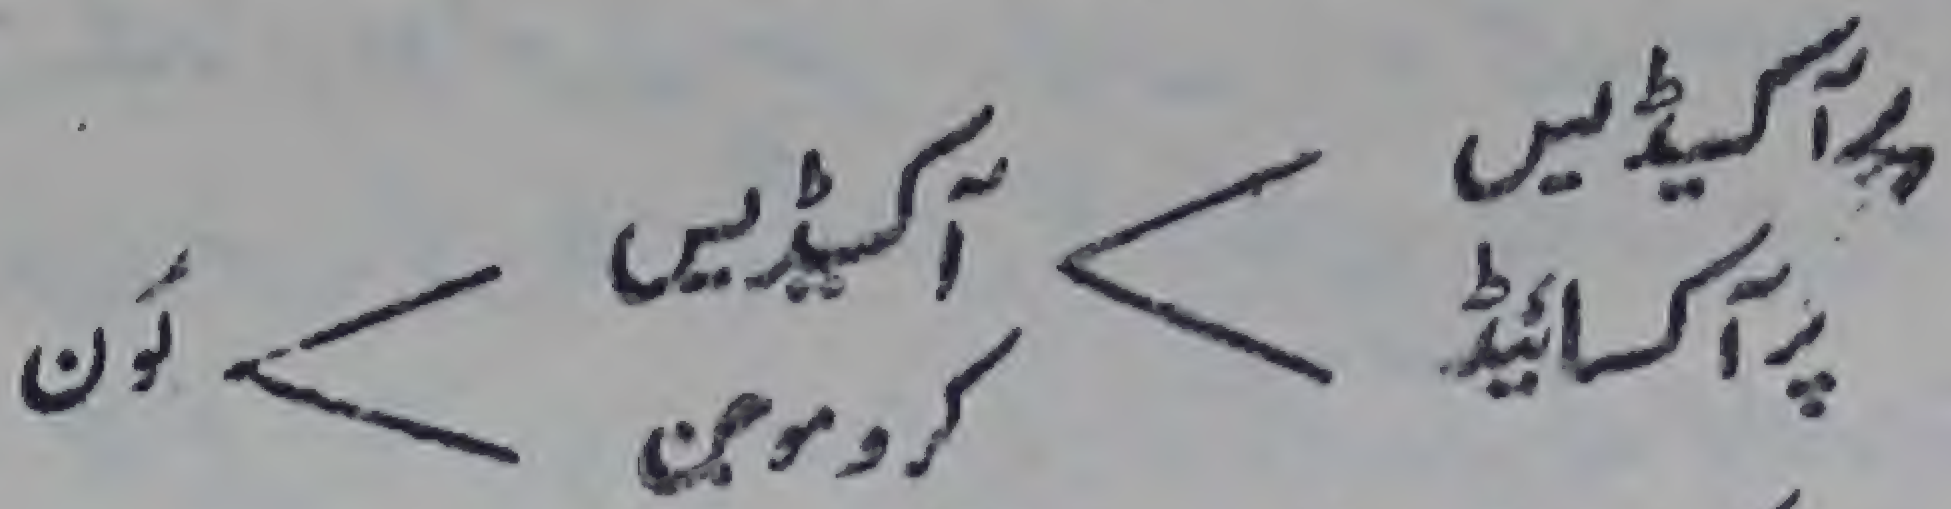 پر آکسیڈیس
پر آکسائیڈ
آکسیڈیس
کروموجن
لَون